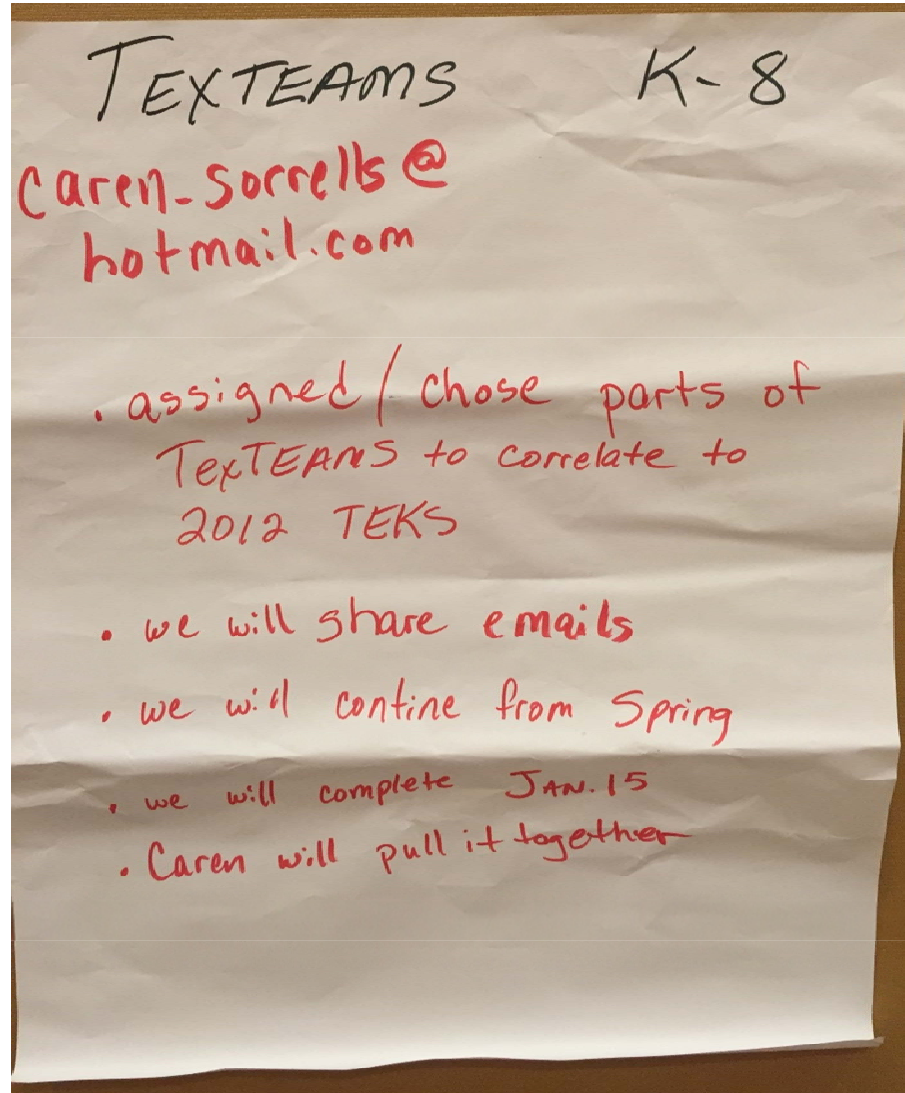 TEXTEAMS K-8
caren_sorrells@
hotmail.com
• assigned / chose parts of
TexTEAMS to correlate to
2012 TEKS
• we will share emails
• we will contine from Spring
• we will complete JAN. 15
• Caren will pull it together